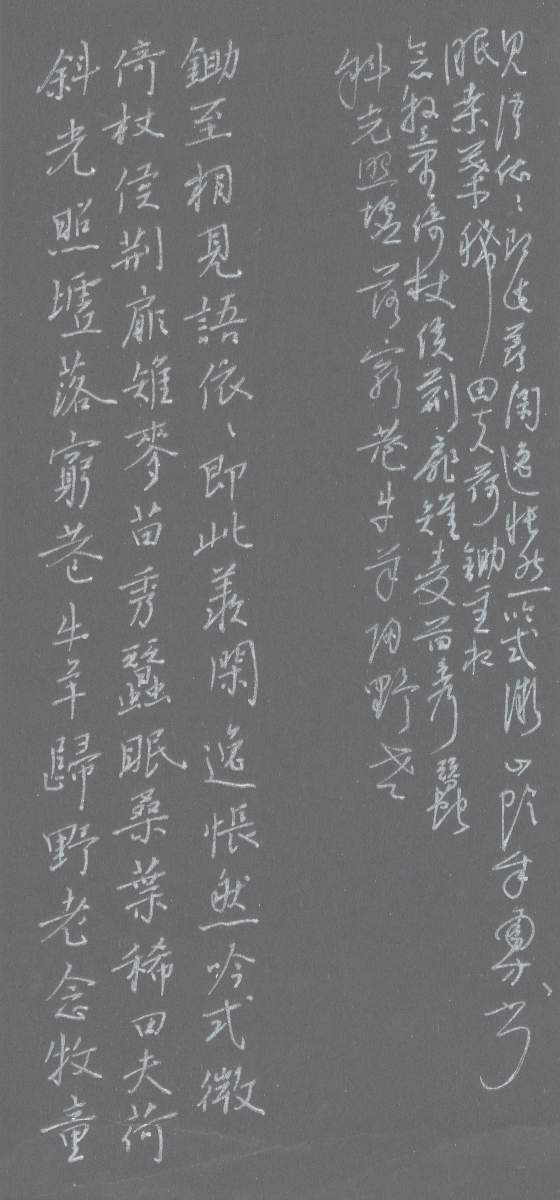 斜光照墟落窮巷牛羊歸野老念牧童
倚杖侯荊扉雉麥苗秀蠶眠桑葉稀田夫荷
鋤至相見語依〻即此羨閑逸悵然吟式微
斜光照墟落窮巷牛羊歸野老
念牧童倚杖侯荊扉雉麦苗秀蠶
眠桑葉稀田夫荷鋤至相
見語依〻即此羨閑逸悵然吟式微